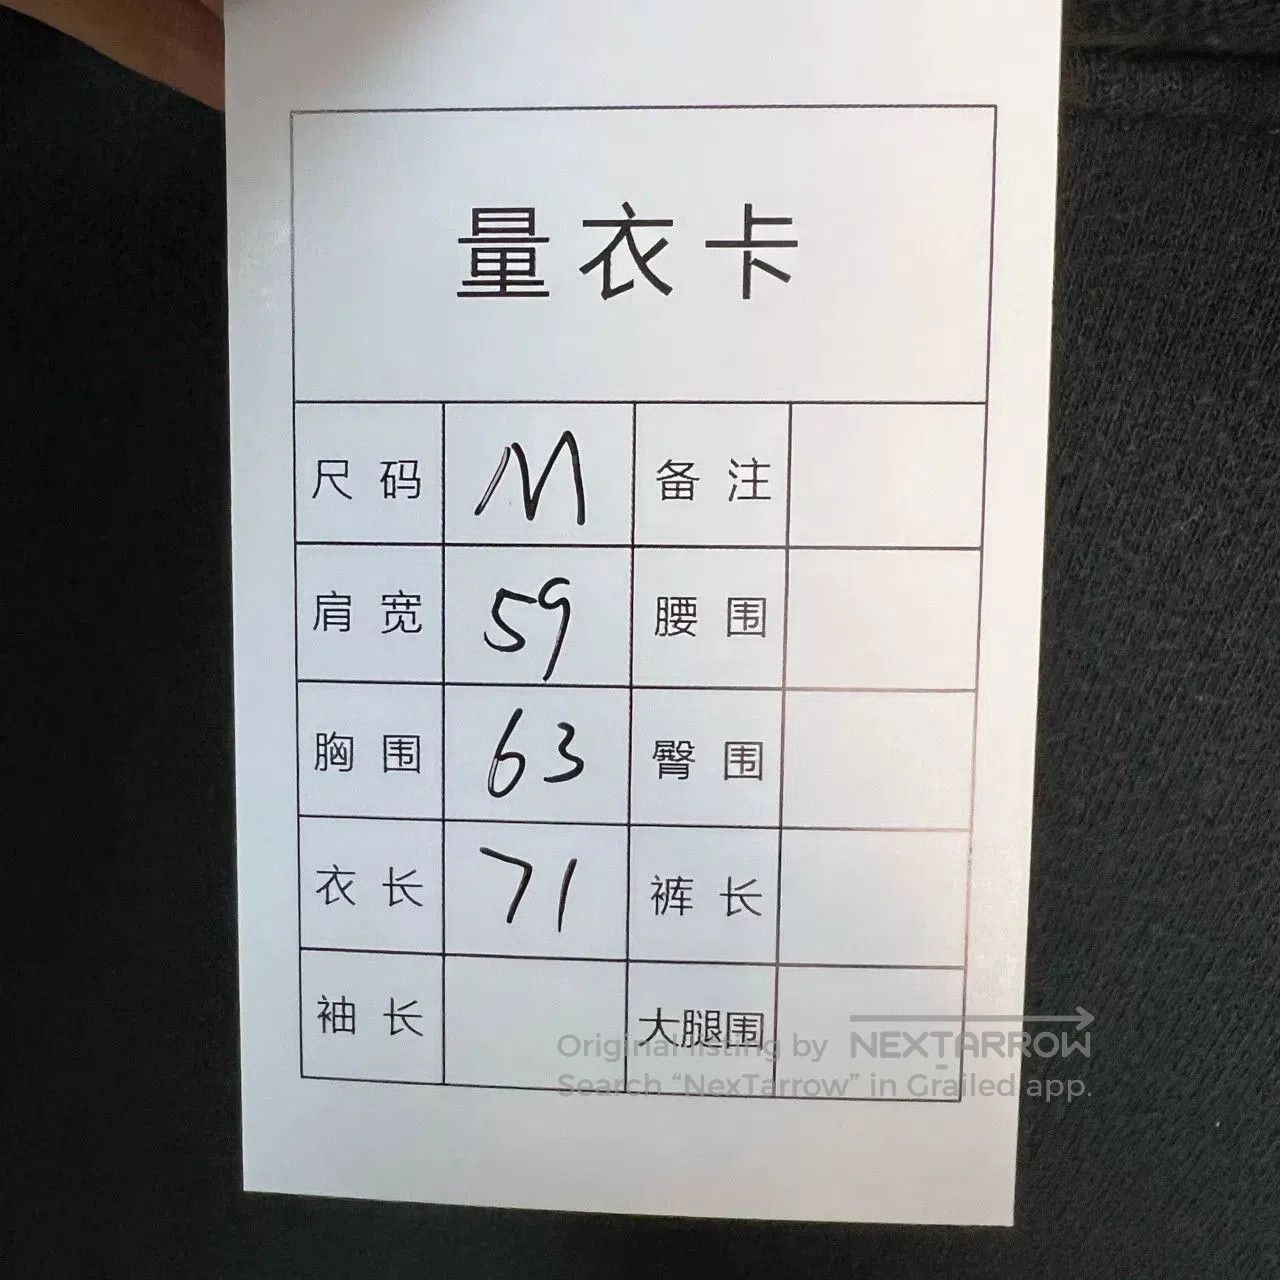 量衣卡
尺码 M 备注
肩宽 59 腰围
胸围 63 臀围
衣长 71 裤长
袖长 大腿围
Original listing by NEXTARROW
Search “NexTarrow” in Grailed app.